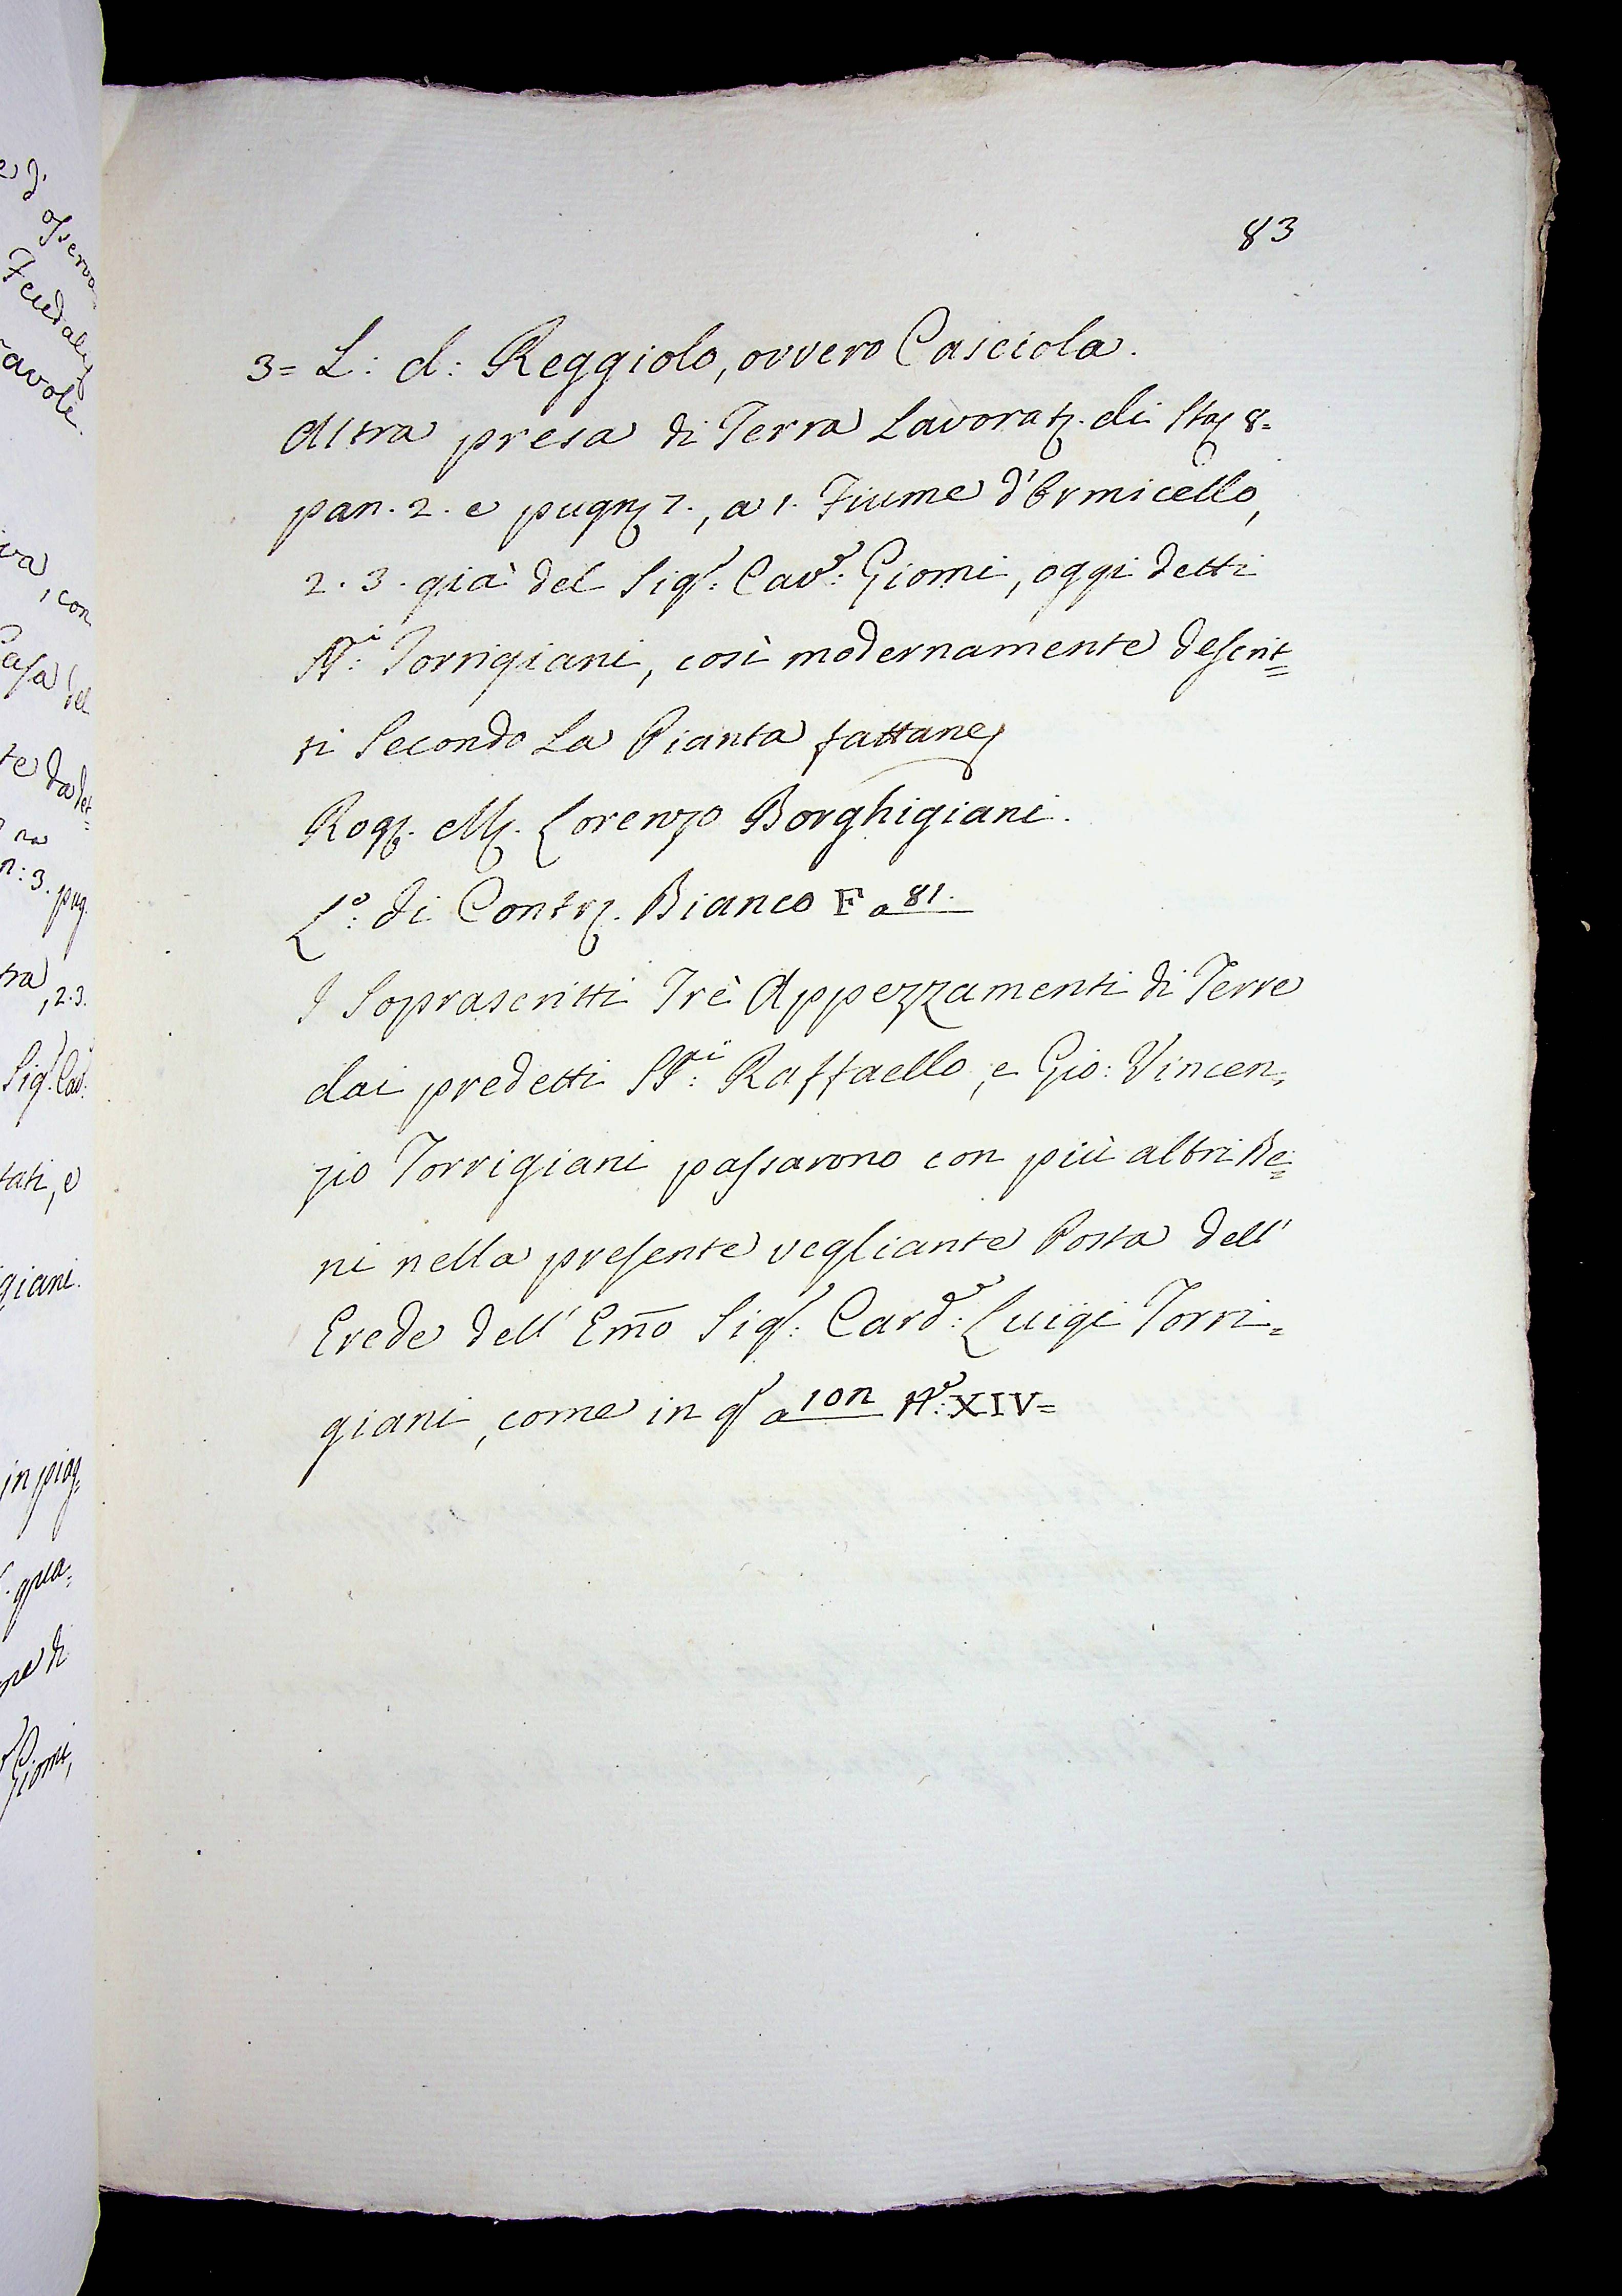 83
3= L: d: Reggiolo, ovvero Casciola.
Altra presa di Terra Lavorat. di Sta 8=
pan. 2. e pugn 7., a 1. Fiume d'Ormicello,
2. 3. già del Sigr: Cavr: Giomi, oggi detti
Torrigiani, così modernamente descrit=
ti Secondo La Pianta fattane
Rog. M. Lorenzo Borghigiani.
Lo: di Contr. Bianco F a 81.
I Soprascritti Trè Appezzamenti di Terre
dai predetti SSri: Raffaello, e Gio: Vincen=
zio Torrigiani passarono con più altri Be=
ni nella presente vegliante Posta dell'
Erede dell' Emo Sigr: Cardr: Luigi Torri=
giani, come in qo a 102 No: XIV=
e d'
osserva
Feudal
avole.
iva, con
Casa del
te da
n: 3. pug.
tra, 2. 3.
Sigr. Cav:
tati, e
giani.
in piag
qua=
me di
Giomi,